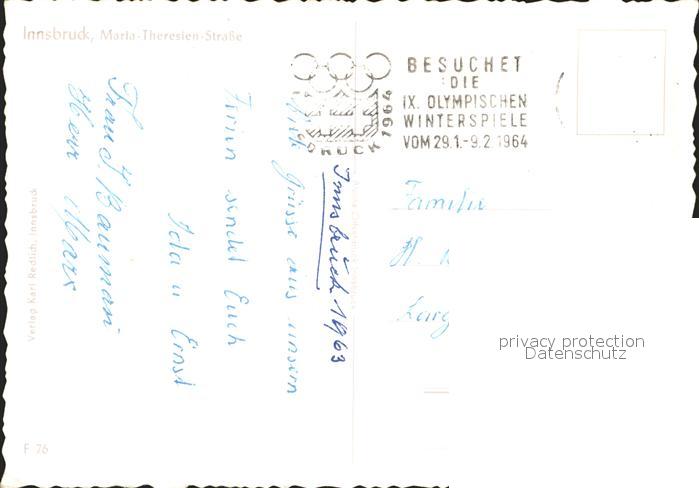 Innsbruck, Maria-Theresien-Straße
BESUCHET
DIE
IX. OLYMPISCHEN
WINTERSPIELE
VOM 29.1.-9.2.1964
1964
Innsbruck 1963
Grüsse aus unsern
Ferien sendet Euch
Ida u Ernst
Frau J Baumann
Herr
Familie
H.
privacy protection
Datenschutz
Verlag Karl Redlich, Innsbruck
F 76